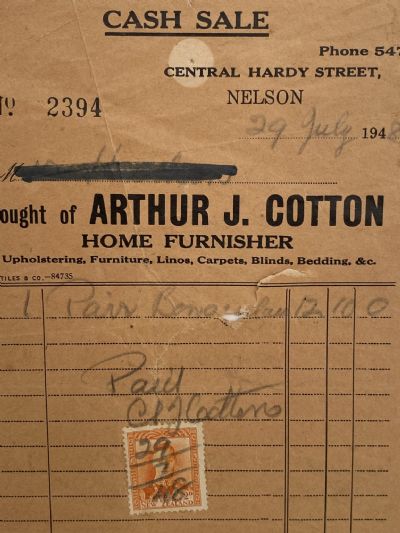 CASH SALE
Phone 547
CENTRAL HARDY STREET,
Nº 2394
NELSON
29 July 1948
M
ought of ARTHUR J. COTTON
HOME FURNISHER
Upholstering, Furniture, Linos, Carpets, Blinds, Bedding, &c.
TILES & CO.—84735
1 Pair Binoculars 12 10 0
Paid
29
7
48
NEW ZEALAND